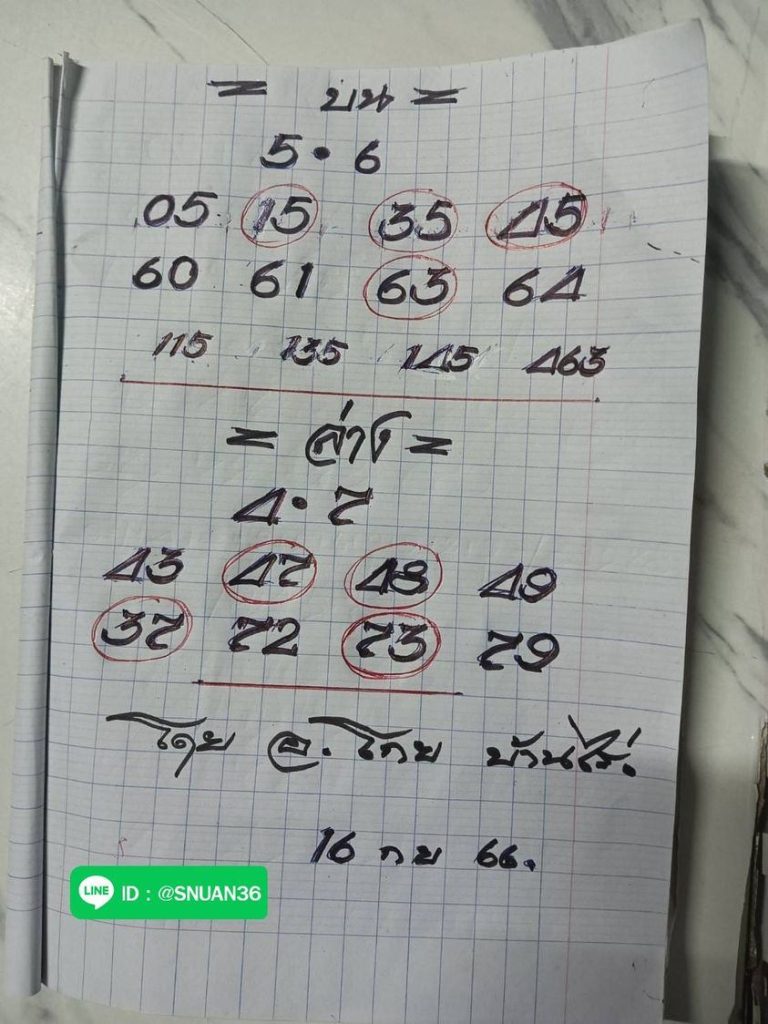 = บน =
5 • 6
05 15 35 45
60 61 63 64
115 135 145 463
= ล่าง =
4 • 7
43 47 48 49
37 72 73 79
โดย อ. โกย บ้านไร่.
16 กย 66.
LINE ID : @SNUAN36